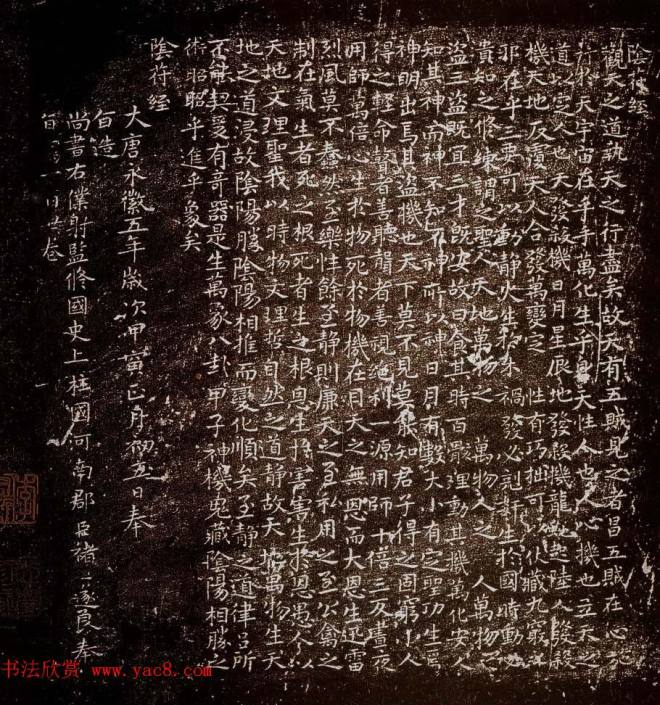 陰符經
觀天之道執天之行盡矣故天有五賊見之者昌五賊在心施
行於天宇宙在乎手萬化生乎身天性人也人心機也立天之
道以定人也天發殺機日月星辰地發殺機龍蛇起陸人發殺
機天地反覆天人合發萬變定 性有巧拙可以伏藏九竅
邪在乎三要可以動靜火生於木禍發必剋 生於國時動
貴知之修練謂之聖人天地萬物之 萬物人之 人萬物之
盜三盜既宜三才既安故曰食其時百骸理動其機萬化安人
知其神而神不知不神所以神日月有數大小有定聖功生焉
神明出焉其盜機也天下莫不見莫能知君子得之固窮小人
得之輕命瞽者善聽聾者善視絕利一源用師十倍三反晝夜
用師萬倍心生於物死於物機在目天之無恩而大恩生迅雷
烈風莫不蠢然至樂性餘至靜則廉天之至私用之至公禽之
制在氣生者死之根死者生之根恩生於害害生於恩愚人以
天地文理聖我以時物文理哲自然之道靜故天地萬物生天
地之道浸故陰陽勝陰陽相推而變化順矣至靜之道律呂所
不能契爰有奇器是生萬象八卦甲子神機鬼藏陰陽相勝之
術昭昭乎進乎象矣
陰符經
大唐永徽五年歲次甲寅正月初五日奉
旨造
尚書右僕射監修國史上柱國河南郡 臣褚遂良奉
旨 卷
书法欣赏 www.yac8.com